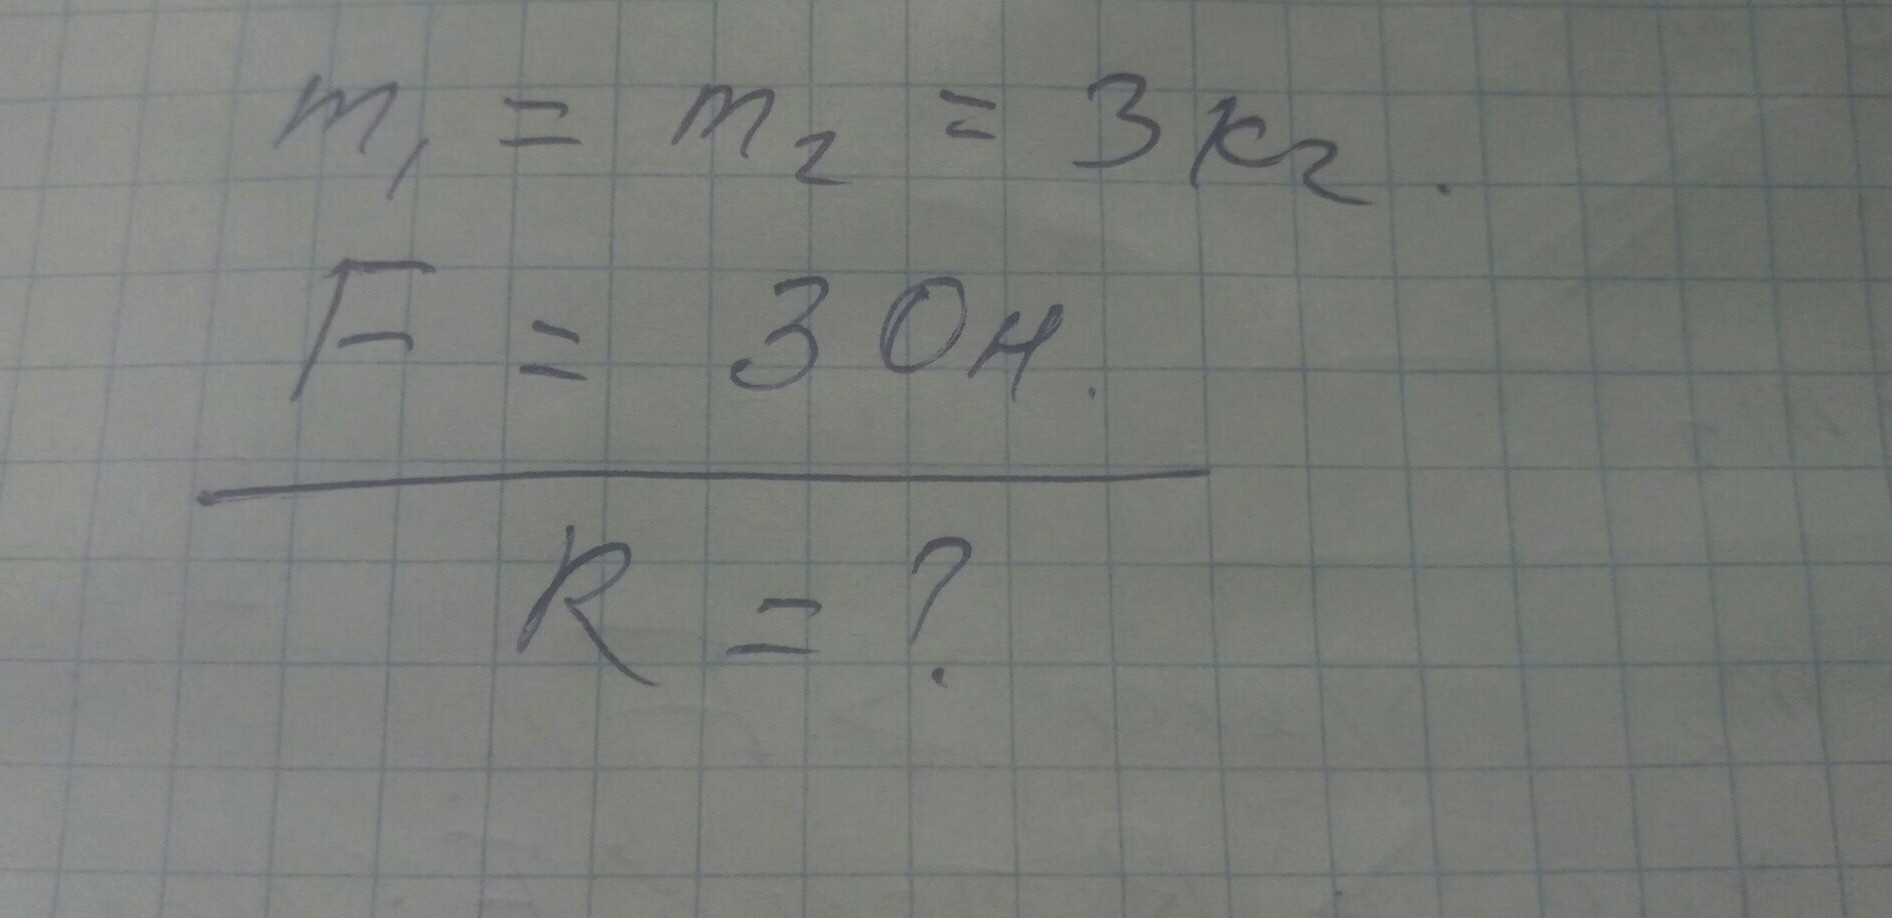 m₁ = m₂ = 3 кг.
F = 30 н.
R = ?